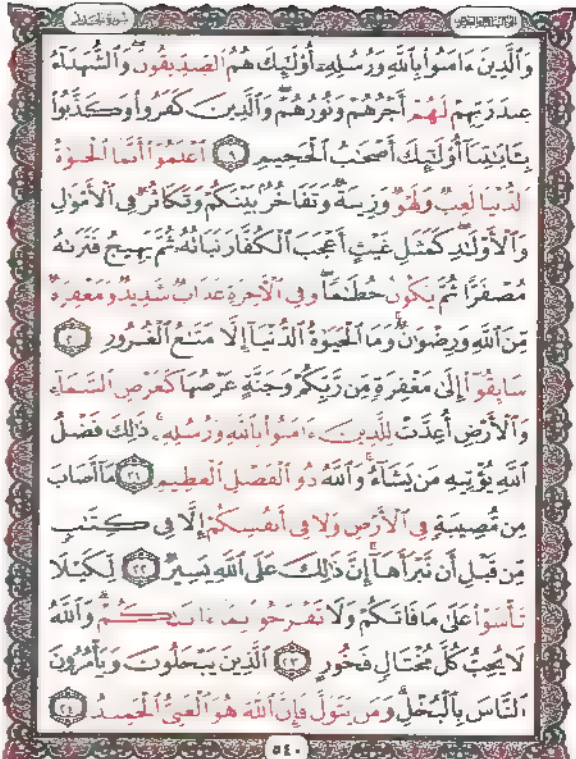 سورة الحديد
وَٱلَّذِينَ ءَامَنُوا۟ بِٱللَّهِ وَرُسُلِهِۦٓ أُو۟لَٰٓئِكَ هُمُ ٱلصِّدِّيقُونَ ۖ وَٱلشُّهَدَآءُ
عِندَ رَبِّهِمْ لَهُمْ أَجْرُهُمْ وَنُورُهُمْ ۖ وَٱلَّذِينَ كَفَرُوا۟ وَكَذَّبُوا۟
بِـَٔايَٰتِنَآ أُو۟لَٰٓئِكَ أَصْحَٰبُ ٱلْجَحِيمِ ١٩ ٱعْلَمُوٓا۟ أَنَّمَا ٱلْحَيَوٰةُ
ٱلدُّنْيَا لَعِبٌ وَلَهْوٌ وَزِينَةٌ وَتَفَاخُرٌۢ بَيْنَكُمْ وَتَكَاثُرٌ فِى ٱلْأَمْوَٰلِ
وَٱلْأَوْلَٰدِ ۖ كَمَثَلِ غَيْثٍ أَعْجَبَ ٱلْكُفَّارَ نَبَاتُهُۥ ثُمَّ يَهِيجُ فَتَرَىٰهُ
مُصْفَرًّا ثُمَّ يَكُونُ حُطَٰمًا ۖ وَفِى ٱلْءَاخِرَةِ عَذَابٌ شَدِيدٌ وَمَغْفِرَةٌ
مِّنَ ٱللَّهِ وَرِضْوَٰنٌ ۚ وَمَا ٱلْحَيَوٰةُ ٱلدُّنْيَآ إِلَّا مَتَٰعُ ٱلْغُرُورِ ٢٠
سَابِقُوٓا۟ إِلَىٰ مَغْفِرَةٍ مِّن رَّبِّكُمْ وَجَنَّةٍ عَرْضُهَا كَعَرْضِ ٱلسَّمَآءِ
وَٱلْأَرْضِ أُعِدَّتْ لِلَّذِينَ ءَامَنُوا۟ بِٱللَّهِ وَرُسُلِهِۦ ۚ ذَٰلِكَ فَضْلُ
ٱللَّهِ يُؤْتِيهِ مَن يَشَآءُ ۚ وَٱللَّهُ ذُو ٱلْفَضْلِ ٱلْعَظِيمِ ٢١ مَآ أَصَابَ
مِن مُّصِيبَةٍ فِى ٱلْأَرْضِ وَلَا فِىٓ أَنفُسِكُمْ إِلَّا فِى كِتَٰبٍ
مِّن قَبْلِ أَن نَّبْرَأَهَآ ۚ إِنَّ ذَٰلِكَ عَلَى ٱللَّهِ يَسِيرٌ ٢٢ لِّكَيْلَا
تَأْسَوْا۟ عَلَىٰ مَا فَاتَكُمْ وَلَا تَفْرَحُوا۟ بِمَآ ءَاتَىٰكُمْ ۗ وَٱللَّهُ
لَا يُحِبُّ كُلَّ مُخْتَالٍ فَخُورٍ ٢٣ ٱلَّذِينَ يَبْخَلُونَ وَيَأْمُرُونَ
ٱلنَّاسَ بِٱلْبُخْلِ ۗ وَمَن يَتَوَلَّ فَإِنَّ ٱللَّهَ هُوَ ٱلْغَنِىُّ ٱلْحَمِيدُ ٢٤
٥٤٠